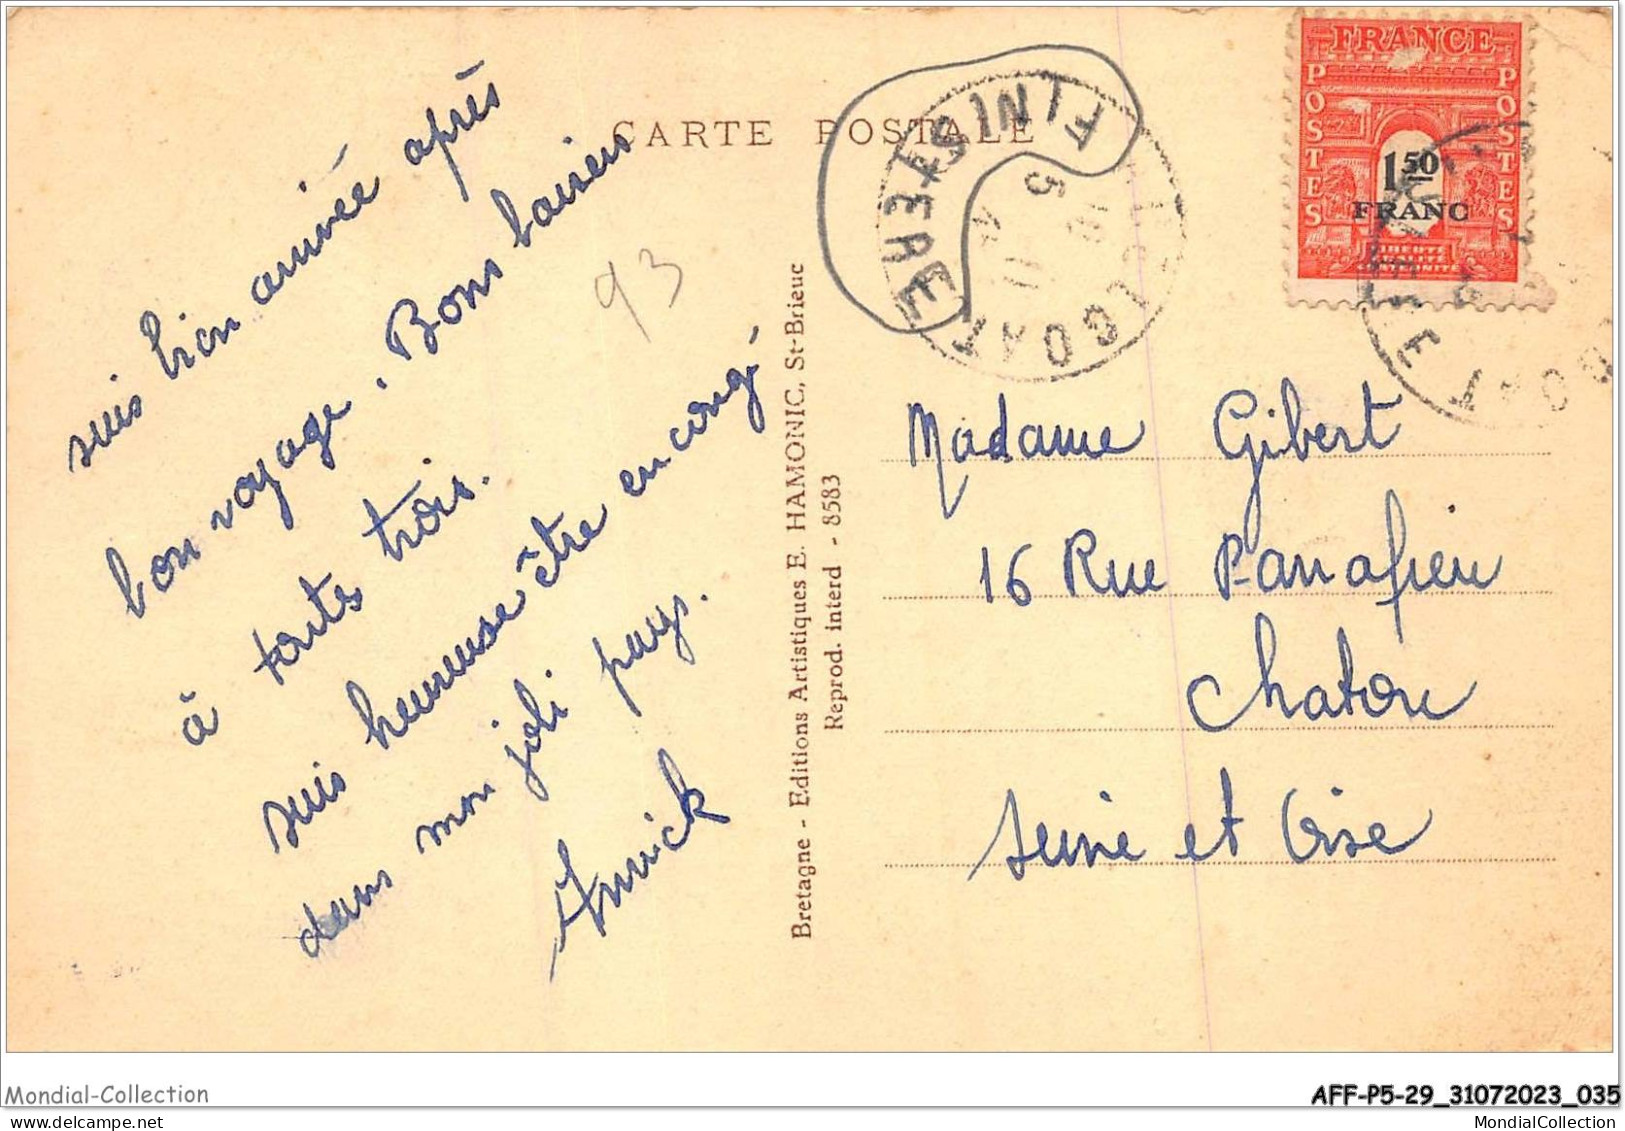 CARTE POSTALE
suis bien arrivée après
bon voyage. Bons baisers
à toutes trois.
suis heureuse être en congé
dans mon joli pays.
Annick
93
Bretagne - Editions Artistiques E. HAMONIC, St-Brieuc
Reprod. interd - 8583
FINISTERE
FRANCE
POSTES
POSTES
1 50
FRANC
Madame Gibert
16 Rue Panafieu
Chatou
Seine et Oise
Mondial-Collection
AFF-P5-29_31072023_035
MondialCollection